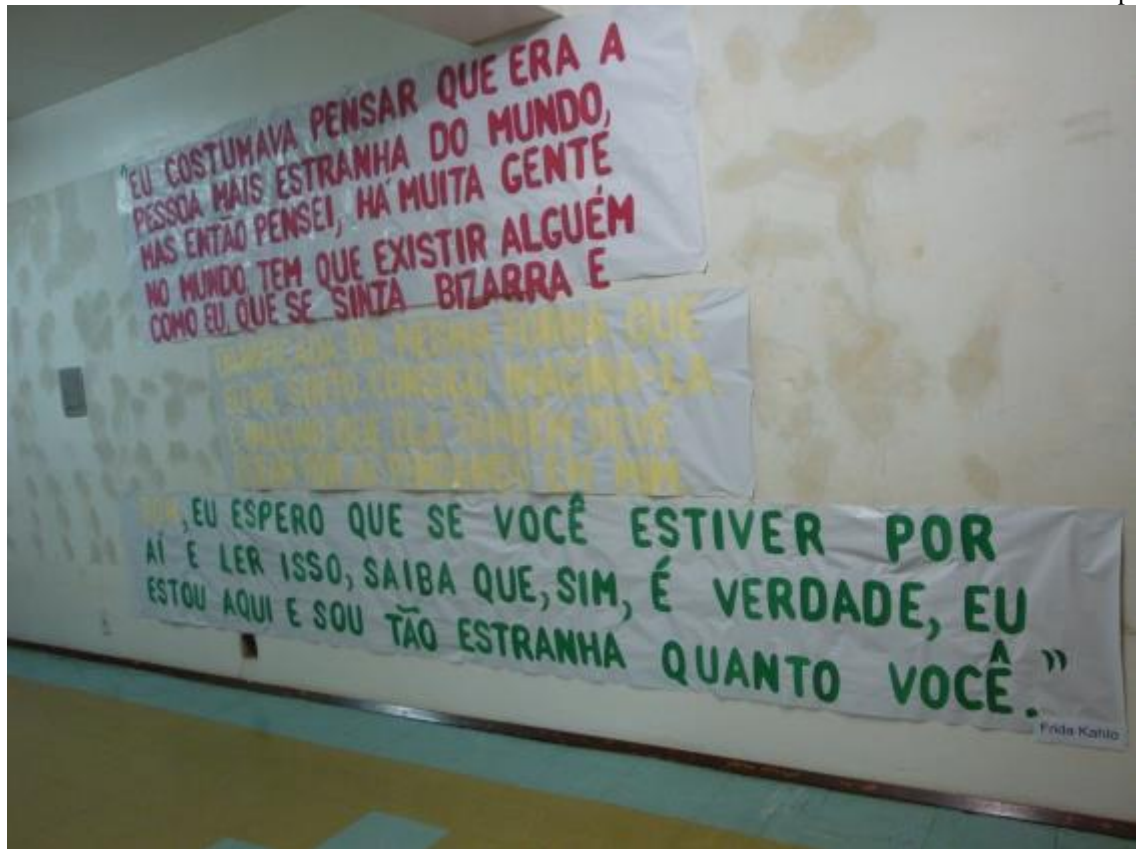 "EU COSTUMAVA PENSAR QUE ERA A
PESSOA MAIS ESTRANHA DO MUNDO,
MAS ENTÃO PENSEI, HÁ MUITA GENTE
NO MUNDO, TEM QUE EXISTIR ALGUÉM
COMO EU, QUE SE SINTA BIZARRA E
DA MESMA FORMA QUE
EU ME SINTO. CONSIGO IMAGINÁ-LA,
E IMAGINO QUE ELA TAMBÉM DEVE
ESTAR POR AÍ PENSANDO EM MIM.
BOM, EU ESPERO QUE SE VOCÊ ESTIVER POR
AÍ E LER ISSO, SAIBA QUE, SIM, É VERDADE, EU
ESTOU AQUI E SOU TÃO ESTRANHA QUANTO VOCÊ."
Frida Kahlo